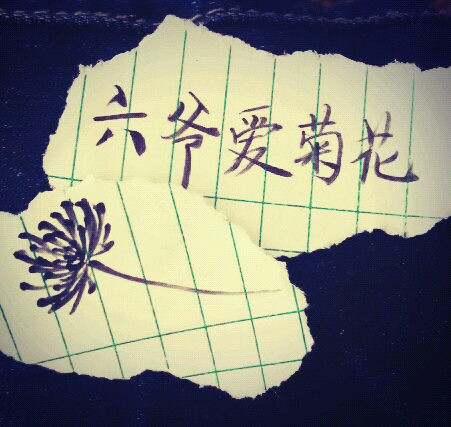 六爷爱菊花